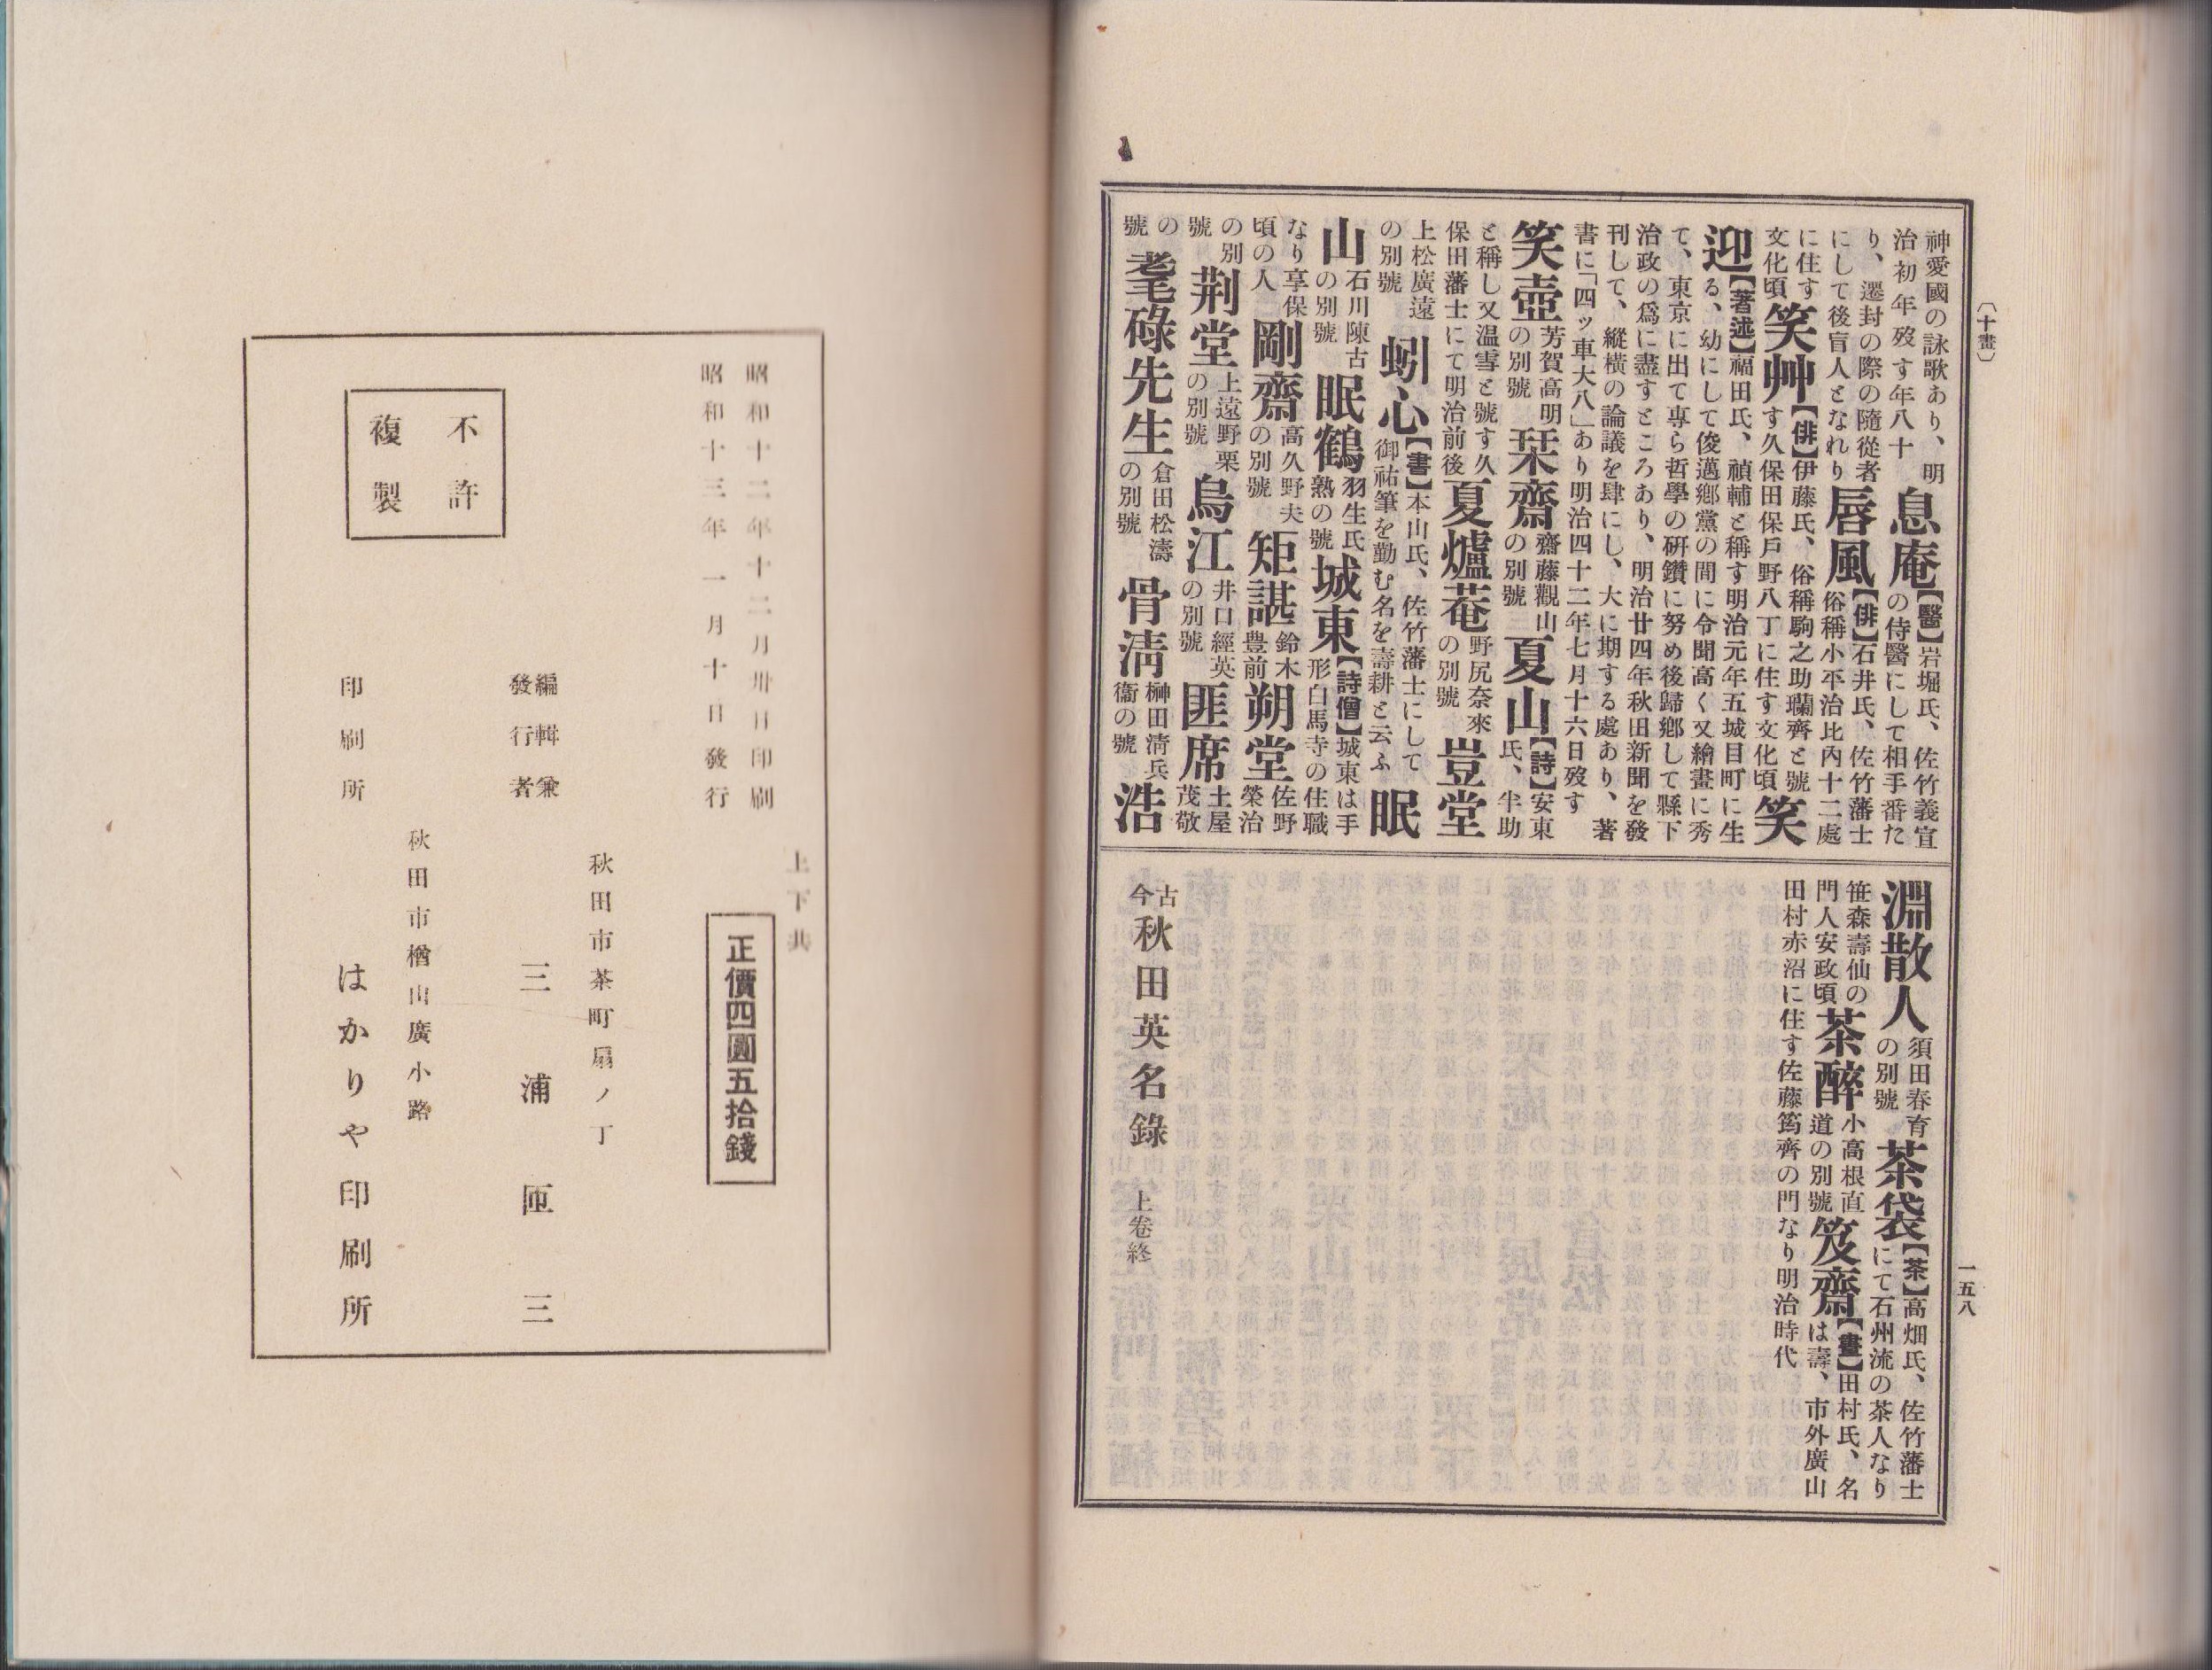 〔十畫〕
神愛國の詠歌あり、明
治初年歿す年八十
息庵【醫】岩堀氏、佐竹義宣
の侍醫にして相手番た
り、遷封の際の隨從者
にして後盲人となれり
唇風【俳】石井氏、佐竹藩士
俗稱小平治比內十二處
に住す
文化頃
笑艸【俳】伊藤氏、俗稱駒之助瓓齊と號
す久保田保戶野八丁に住す文化頃
笑
迎【著述】福田氏、禎輔と稱す明治元年五城目町に生
る、幼にして俊邁鄕黨の間に令聞高く又繪畫に秀
て、東京に出て專ら哲學の硏鑽に努め後歸鄕して縣下
治政の爲に盡すところあり、明治廿四年秋田新聞を發
刊して、縱橫の論議を肆にし、大に期する處あり、著
書に「四ッ車大八」あり明治四十二年七月十六日歿す
笑壺
芳賀高明
の別號
栞齋
齋藤觀山
の別號
夏山【詩】安東
氏、半助
と稱し又温雪と號す久
保田藩士にて明治前後
夏爐菴
野尻奈來
の別號
豈堂
上松廣遠
の別號
蚓心【書】本山氏、佐竹藩士にして
御祐筆を勤む名を壽耕と云ふ
眠
山
石川陳古
の別號
眠鶴
羽生氏
熟の號
城東【詩僧】城東は手
形白馬寺の住職
なり享保
頃の人
剛齋
高久野夫
の別號
矩諶
鈴木
豊前
朔堂
佐野
榮治
の別
號
荆堂
上遠野栗
の別號
烏江
井口經英
の別號
匪席
土屋
茂敬
の
號
耄碌先生
倉田松濤
の別號
骨淸
榊田淸兵
衞の號
浩
淵散人
須田春育
の別號
茶袋【茶】高畑氏、佐竹藩士
にて石州流の茶人なり
笹森壽仙の
門人安政頃
茶醉
小高根直
道の別號
笈齋【畫】田村氏、名
は壽、市外廣山
田村赤沼に住す佐藤筠齊の門なり明治時代
古今 秋田英名錄 上卷終
一五八
上下共
正價四圓五拾錢
昭和十二年十二月卅日印刷
昭和十三年一月十日發行
秋田市茶町扇ノ丁
編輯兼
發行者
三浦匝三
秋田市楢山廣小路
印刷所 はかりや印刷所
不許
複製